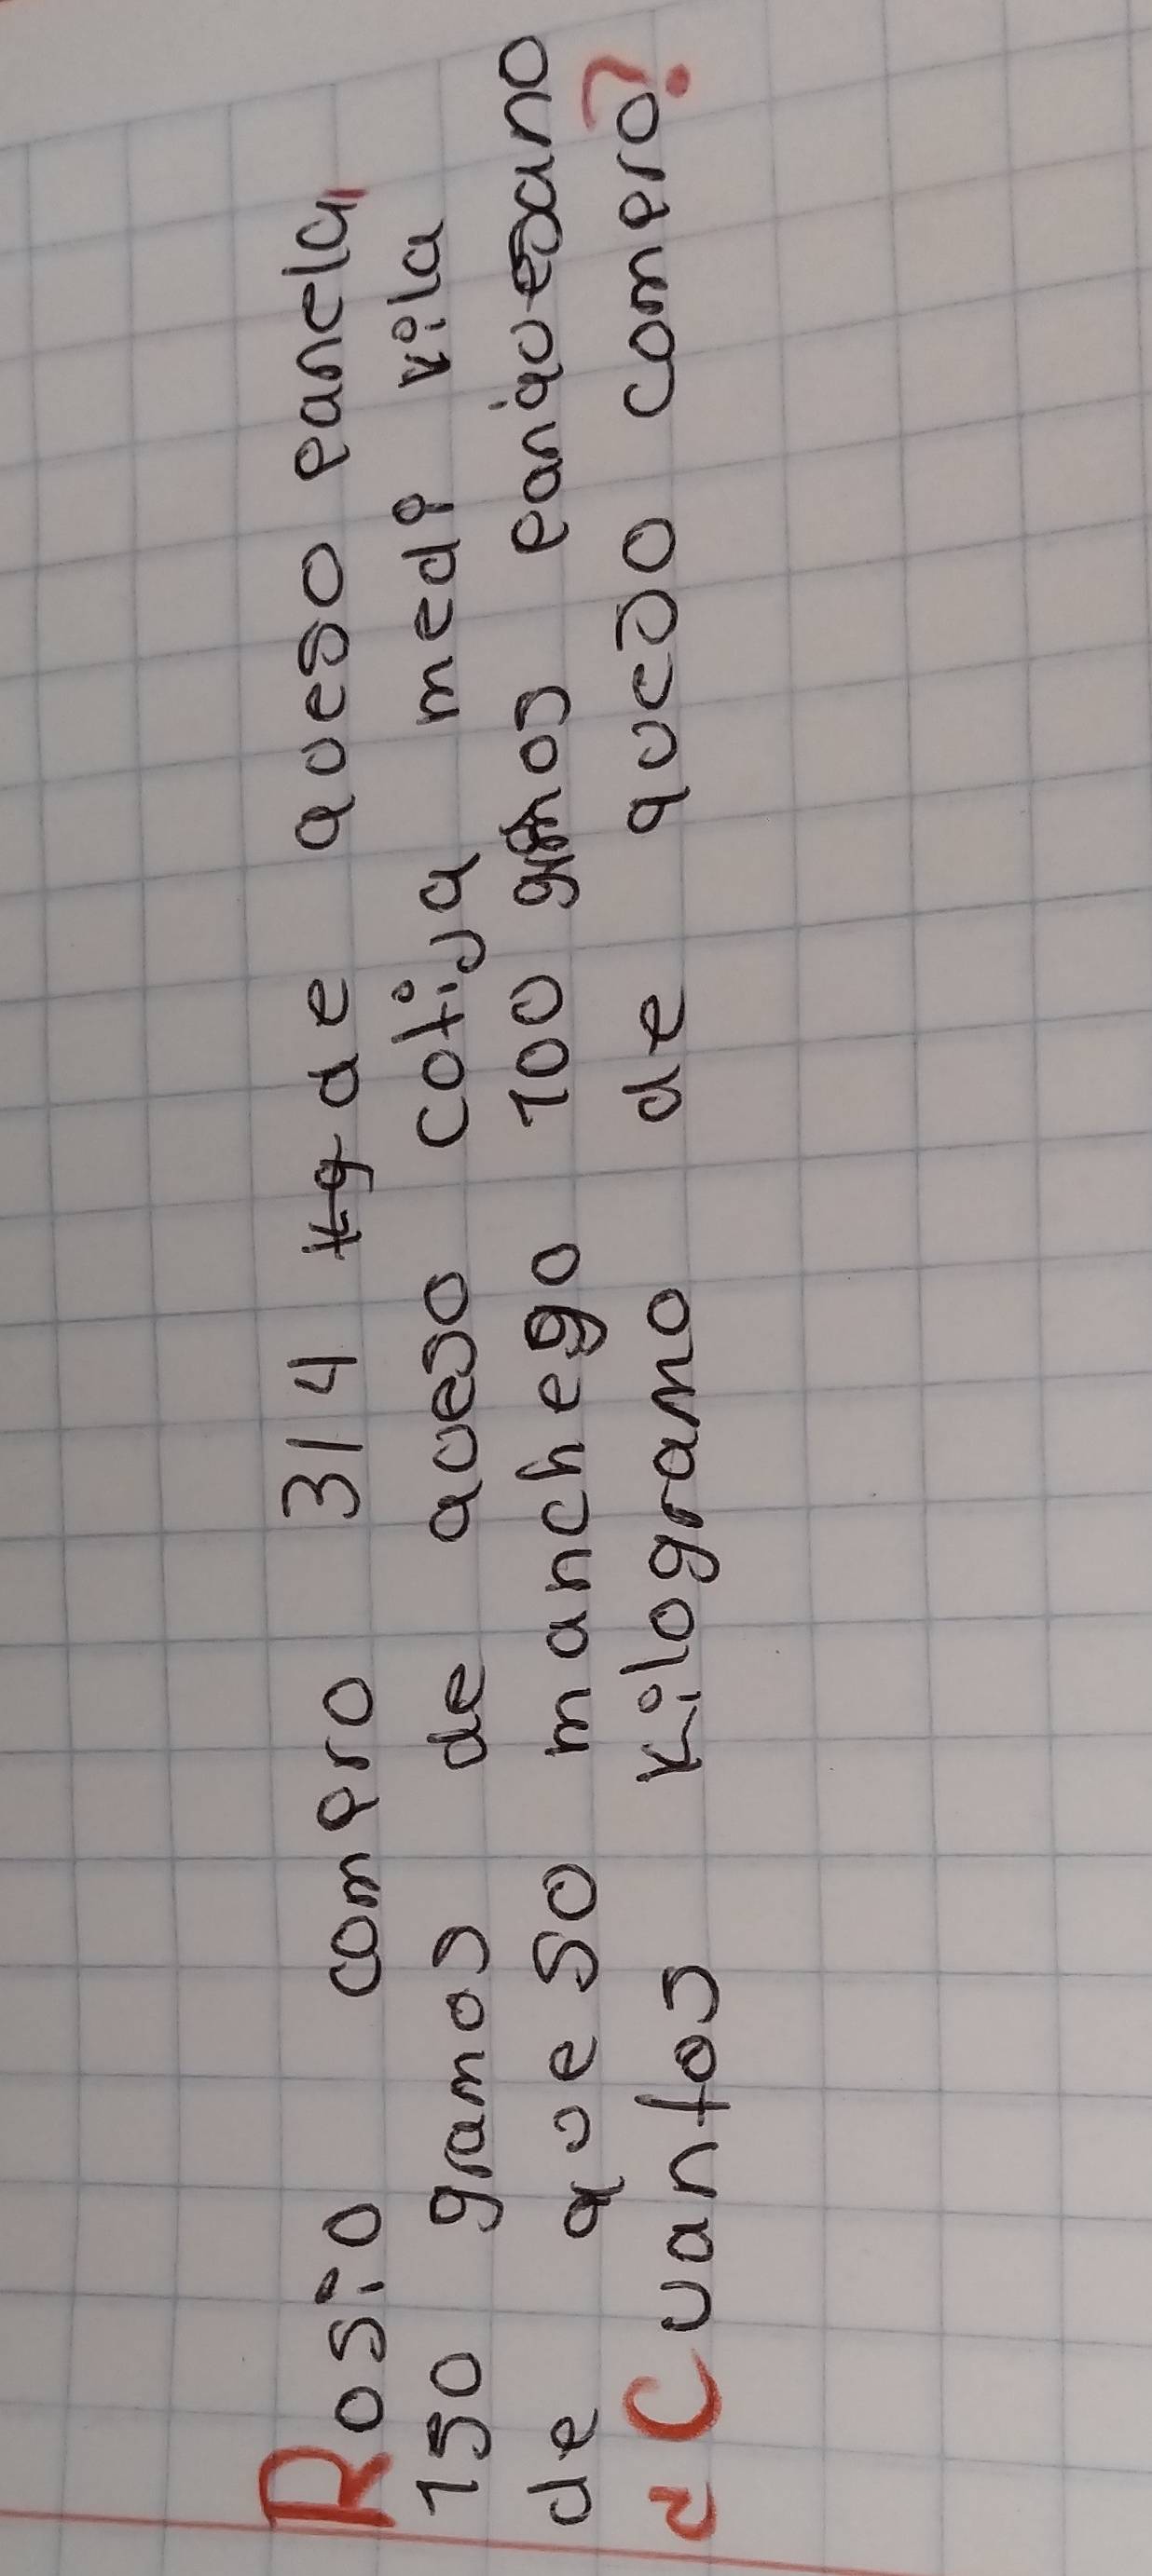 Rosio compro 3/4 kg de queso panela,
150 gramos de queso cotija medi kila
de queso manchego 100 gramos panigoesano
¿Cuantos kilogramo de queso compro?